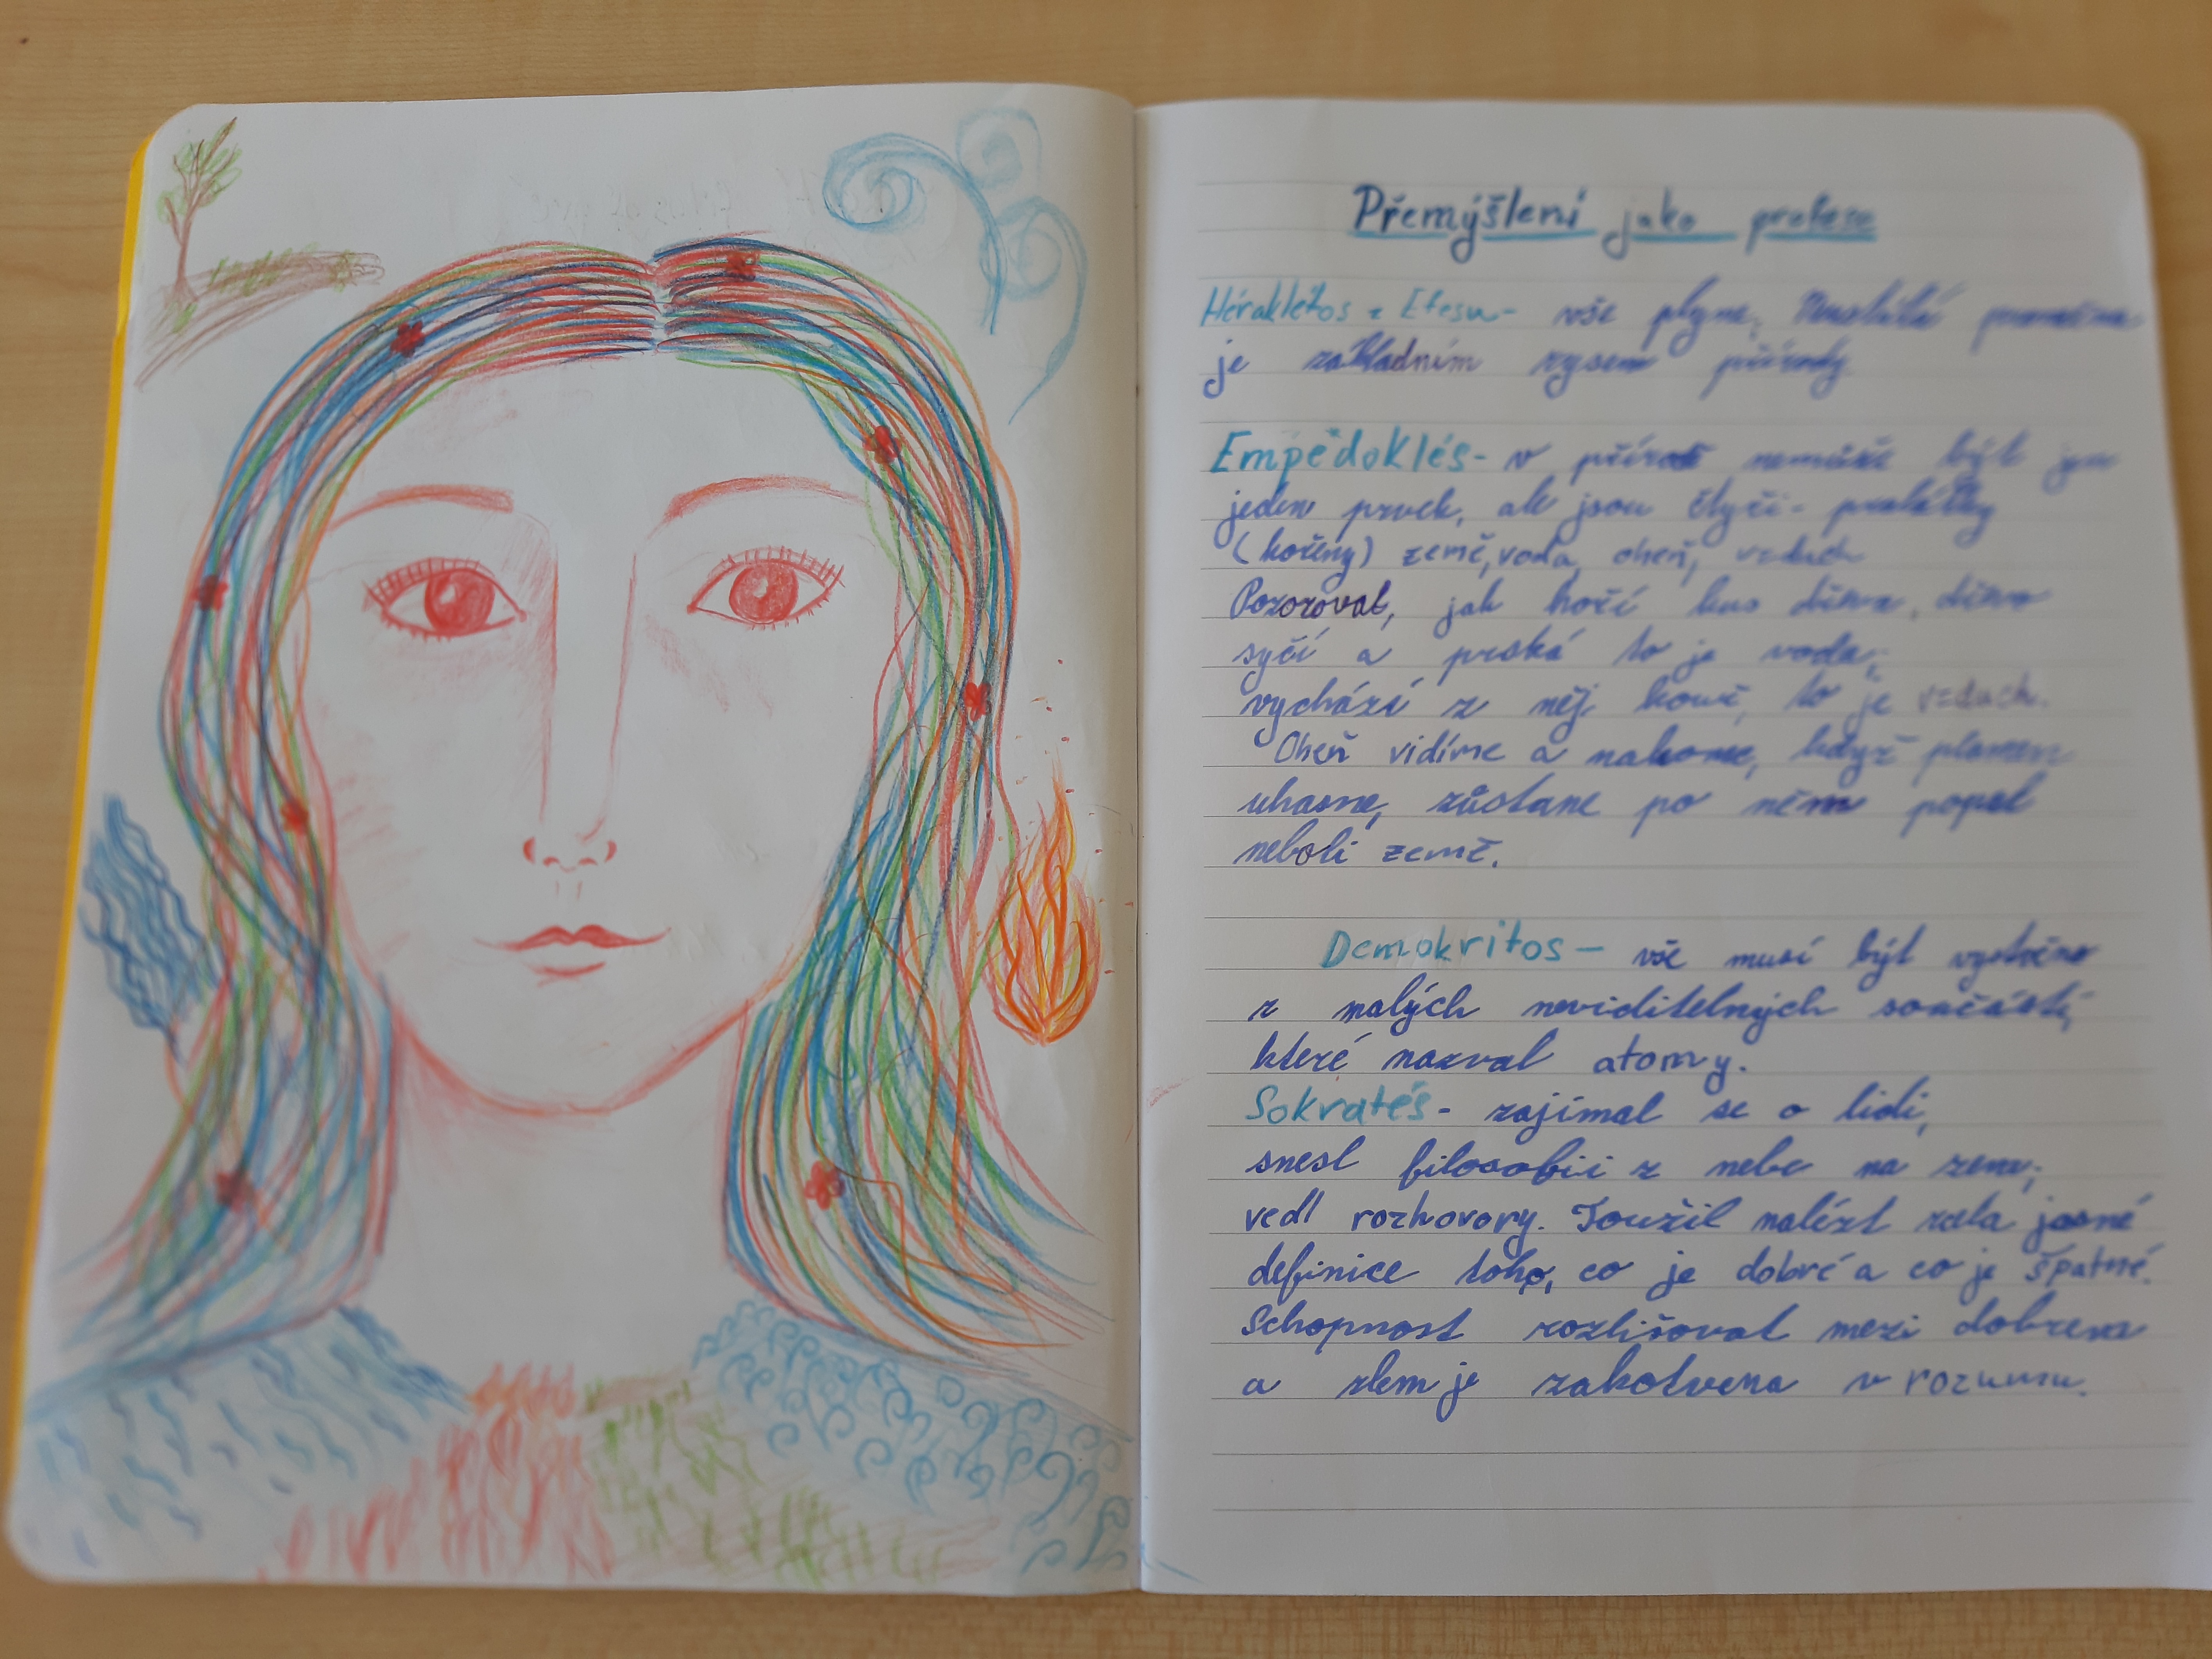 Přemýšlení jako profese
Hérakleitos z Efesu- vše plyne. Neustálá proměna
je základním rysem přírody
Empedoklés- v přírodě nemůže být jen
jeden prvek, ale jsou čtyři- pralátky
(kořeny) země, voda, oheň, vzduch
Pozoroval, jak hoří kus dřeva, dřevo
syčí a prská to je voda;
vychází z něj kouř, to je vzduch.
Oheň vidíme a nakonec, když plamen
uhasne, zůstane po něm popel
neboli země.
Demokritos- vše musí být vystavěno
z malých neviditelných součástí,
které nazval atomy.
Sokratés- zajímal se o lidi,
snesl filosofii z nebe na zem;
vedl rozhovory. Toužil nalézt zcela jasné
definice toho, co je dobré a co je špatné.
Schopnost rozlišovat mezi dobrem
a zlem je zakotvena v rozumu.